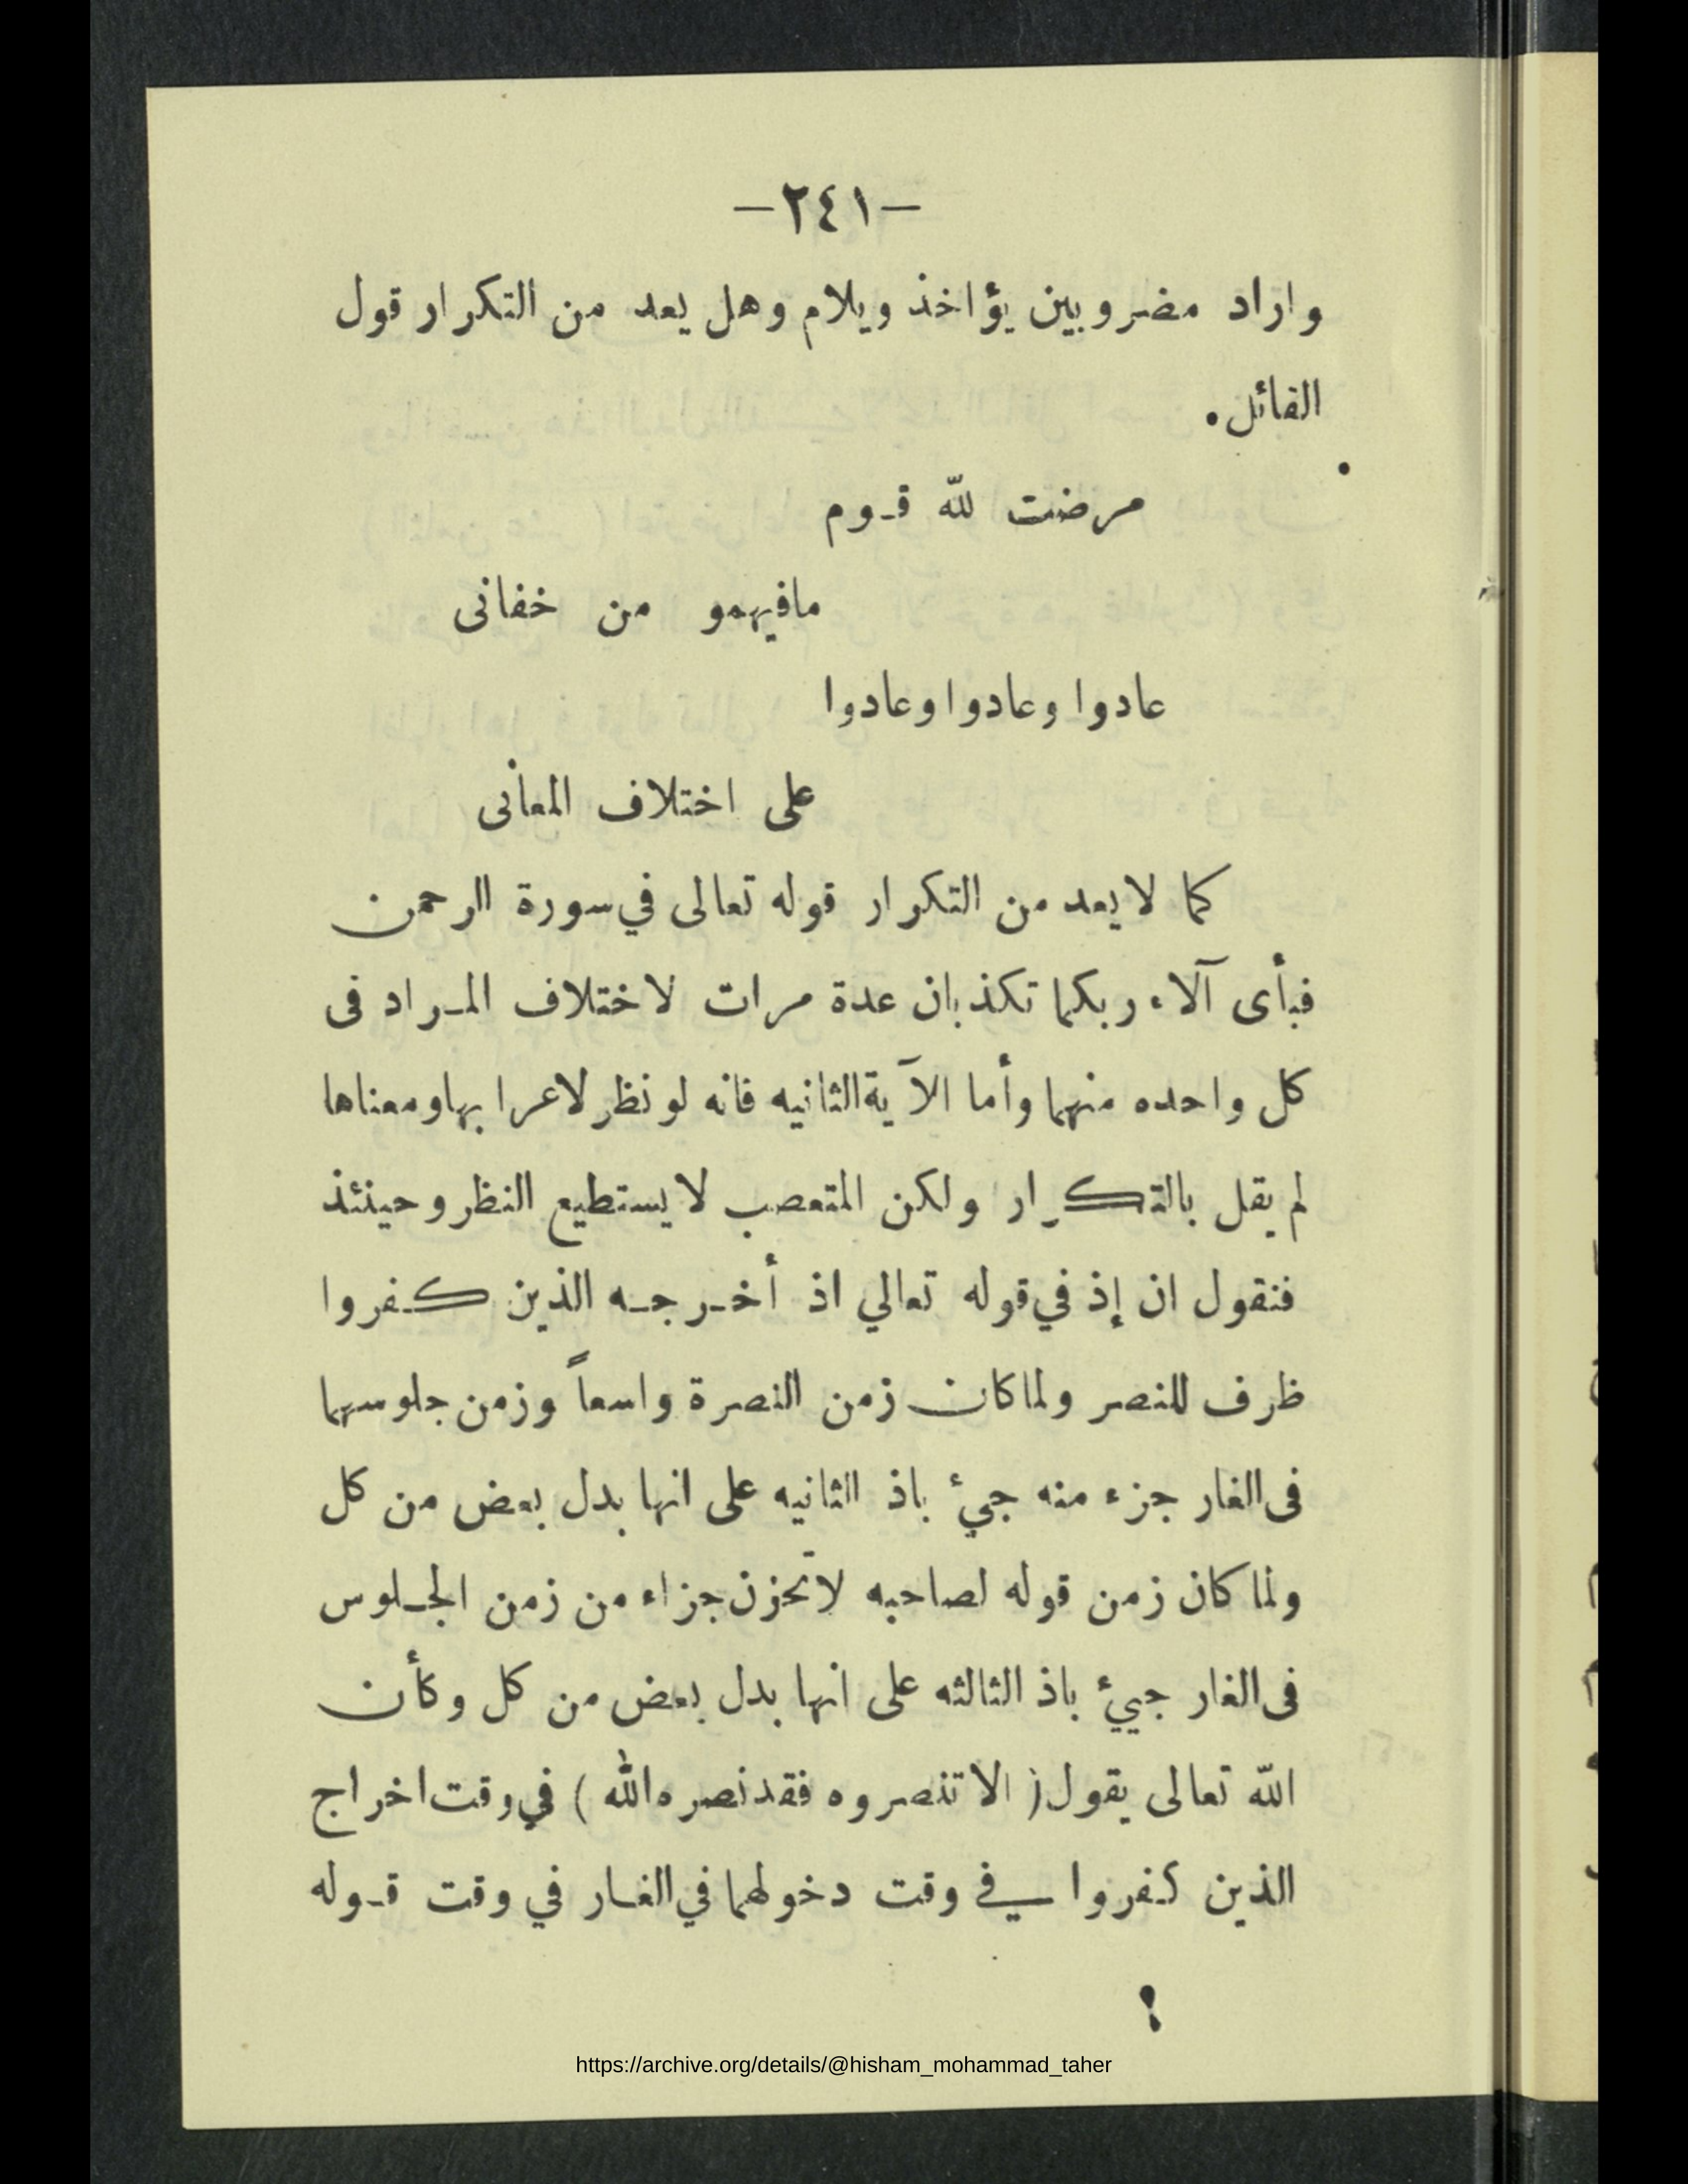 -٢٤١-
واراد مضروبين يؤاخذ ويلام وهل يعد من التكرار قول
القائل.
مرضت لله قوم
مافيهمو من خفانى
عادوا وعادوا وعادوا
على اختلاف المعانى
كما لا يعد من التكرار قوله تعالى في سورة الرحمن
فبأى آلاء ربكما تكذبان عدة مرات لاختلاف المراد فى
كل واحده منهما وأما الآية الثانيه فانه لو نظر لاعرابها ومعناها
لم يقل بالتكرار ولكن المتعصب لا يستطيع النظر وحينئذ
فنقول ان إذ في قوله تعالي اذ أخرجه الذين كفروا
ظرف للنصر ولما كان زمن النصرة واسعاً وزمن جلوسهما
فى الغار جزء منه جيئ باذ الثانيه على انها بدل بعض من كل
ولما كان زمن قوله لصاحبه لاتحزن جزاء من زمن الجلوس
فى الغار جيئ باذ الثالثه على انها بدل بعض من كل وكأن
الله تعالى يقول ( الا تنصروه فقد نصره الله ) في وقت اخراج
الذين كفروا في وقت دخولهما في الغار في وقت قوله
https://archive.org/details/@hisham_mohammad_taher